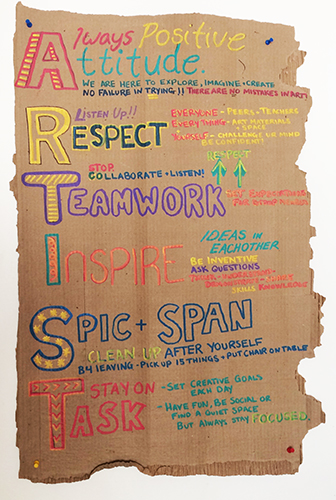 Always Positive
Attitude.
WE ARE HERE TO EXPLORE, IMAGINE + CREATE
NO FAILURE IN TRYING!! THERE ARE NO MISTAKES IN ART!
LISTEN UP!!
RESPECT
EVERYONE - PEERS - TEACHERS
EVERYTHING - ART MATERIALS + SPACE
YOURSELF - CHALLENGE UR MIND
BE CONFIDENT!
RESPECT
STOP
COLLABORATE + LISTEN!
TEAMWORK
SET EXPECTATIONS
FOR
INSPIRE
IDEAS IN
EACHOTHER
BE INVENTIVE
ASK QUESTIONS
SKILLS KNOWLEDGE
SPIC + SPAN
CLEAN UP AFTER YOURSELF
B4 LEAVING - PICK UP 15 THINGS - PUT CHAIR ON TABLE
STAY ON
TASK
- SET CREATIVE GOALS
EACH DAY
- HAVE FUN, BE SOCIAL OR
FIND A QUIET SPACE
BUT ALWAYS STAY FOCUSED.